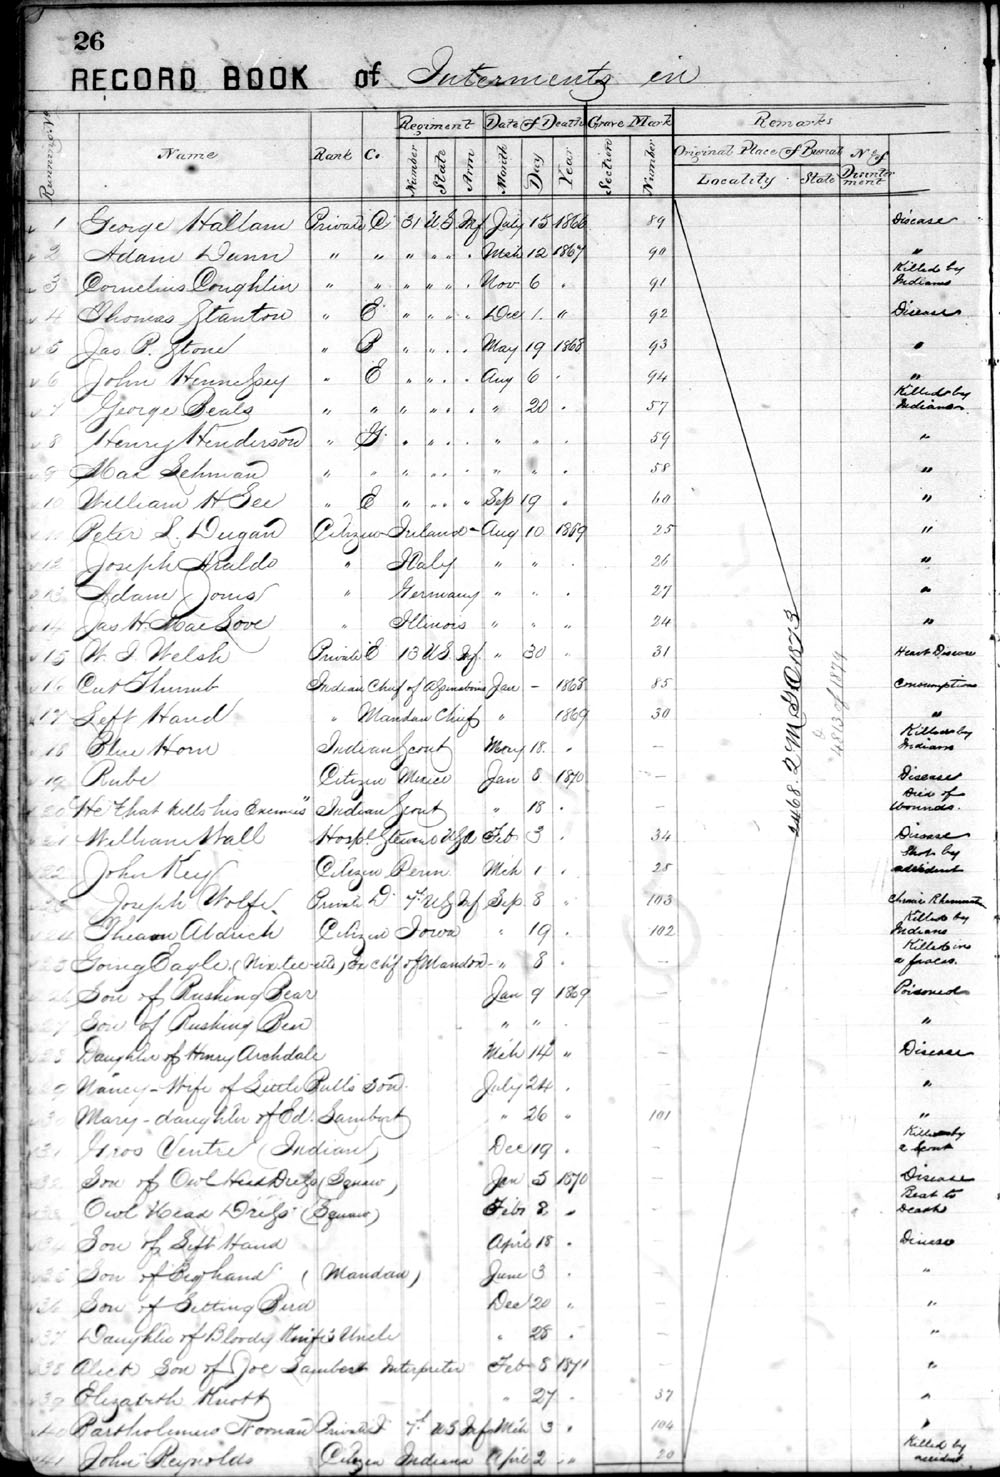 26
RECORD BOOK of Interments in
Running No Name Rank Co. Regiment Number State Arm Date of Death Month Day Year Grave Mark Section Number Remarks Original Place of Burial Locality State No of Disinterment
1 George Hallam Private C 31 U.S. Inf July 15 1866 89 Disease
2 Adam Dunn " " " " " " Mch 12 1867 90 "
3 Cornelius Coughlin " " " " " " Nov 6 " 91 Killed by Indians
4 Thomas Stanton " E " " " " Dec 1 " 92 Disease
5 Jas P. Stone " B " " " " May 19 1868 93 "
6 John Hennessey " E " " " " Aug 6 " 94 "
7 George Beals " " " " " " " 20 " 57 Killed by Indians
8 Henry Henderson " G " " " " " " " 59 "
9 Max Lehman " " " " " " " " " 58 "
10 William H Lee " E " " " " Sep 19 " 60 "
11 Peter S. Dugan Citizen Ireland - Aug 10 1869 25 "
12 Joseph Araldo " Italy " " " 26 "
13 Adam Jones " Germany " " " 27 "
14 Jas H. MacLove " Illinois " " " 24 "
15 W. J. Welsh Private E 13 U.S. Inf " 30 " 31 Heart Disease
16 Cut Thumb Indian Chief of Assinaboins Jan - 1868 85 Consumption
17 Left Hand " Mandan Chief " 1869 30 "
18 Blue Horn Indian Scout May 18 " — Killed by Indians
19 Rube Citizen Mexico Jan 8 1870 — Disease
20 "He that kills his Enemies" Indian Scout " 18 " — Died of Wounds.
21 William Wall Hospl. Steward USA Feb 3 " 34 Disease
22 John Key Citizen Penn Mch 1 " 25 Shot by accident
23 Joseph Wolfe Private D 7th US Inf Sep 8 " 103 Chronic Rheumat
24 Aldrich Citizen Iowa " 19 " 102 Killed by Indians
25 Going Eagle ex chf of Mandan - " 8 " — Killed in a fracas.
26 Son of Rushing Bear Jan 9 1869 — Poisoned
27 Son of Rushing Bear " " — "
28 Daughter of Henry Archdale Mch 14 " — Disease
29 Nancy - Wife of Little Bull's Son July 24 " — "
30 Mary - daughter of Ed. Lambert " 26 " 101 "
31 Gros Ventre (Indian) Dec 19 " — Killed by a Scout
32 Son of Owl Head Dress (Squaw) Jan 5 1870 — Disease
33 Owl Head Dress (Squaw) Feb 2 " — Beat to Death
34 Son of Left Hand April 18 " Disease
35 Son of Bighand (Mandan) June 3 " "
36 Son of Setting Bird Dec 20 " — "
37 Daughter of Bloody Knife's Uncle " 28 " — "
38 Aleck Son of Joe Lambert Interpreter Feb 8 1871 — "
39 Elizabeth Knott " 27 " 37 "
40 Bartholimew Noonan Private I 7th US Inf Mch 3 " 104 "
41 John Reynolds Citizen Indiana April 2 " 20 Killed by accident
2468. 2 M G O 1873
4813 of 1874